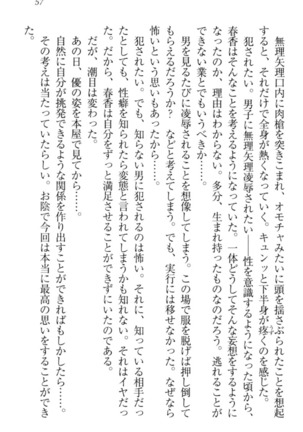 57
　無理矢理口内に肉槍を突きこまれ、オモチャみたいに頭を揺さぶられたことを想起
すると、それだけで全身が熱くなっていく。キュンッと下半身が疼くのを感じた。
　犯されたい。男子に無理矢理凌辱されたい――性を意識するようになった頃から、
春香はそんなことを考えるようになっていた。一体どうしてそんな妄想をするように
なったのか、理由はわからない。多分、生まれ持ったものなのだろう。逃れることが
できない業とでもいうべきか……。
　男を見るたびに凌辱されることを想像してしまう。この場で服を脱げば押し倒して
もらえるだろうか？　などと考えてしまう。でも、実行には移せなかった。なぜなら
怖いという思いもあったから……。
　犯されたい。でも、知らない男に犯されるのは怖い。それに、知っている相手だっ
たとしても、性癖を知られたら変態と言われてしまうかも知れない。それはイヤだっ
た。だから、春香は自分をずっと満足させることができずにいたのである。
　だが、潮目は変わった。
　あの日、優の姿を本屋で見て……。
　自然に自分が挑発できるような関係を作り出すことができればもしかしたら……。
　その考えは当たっていたらしい。お陰で今回は本当に最高の思いをすることができ
た。